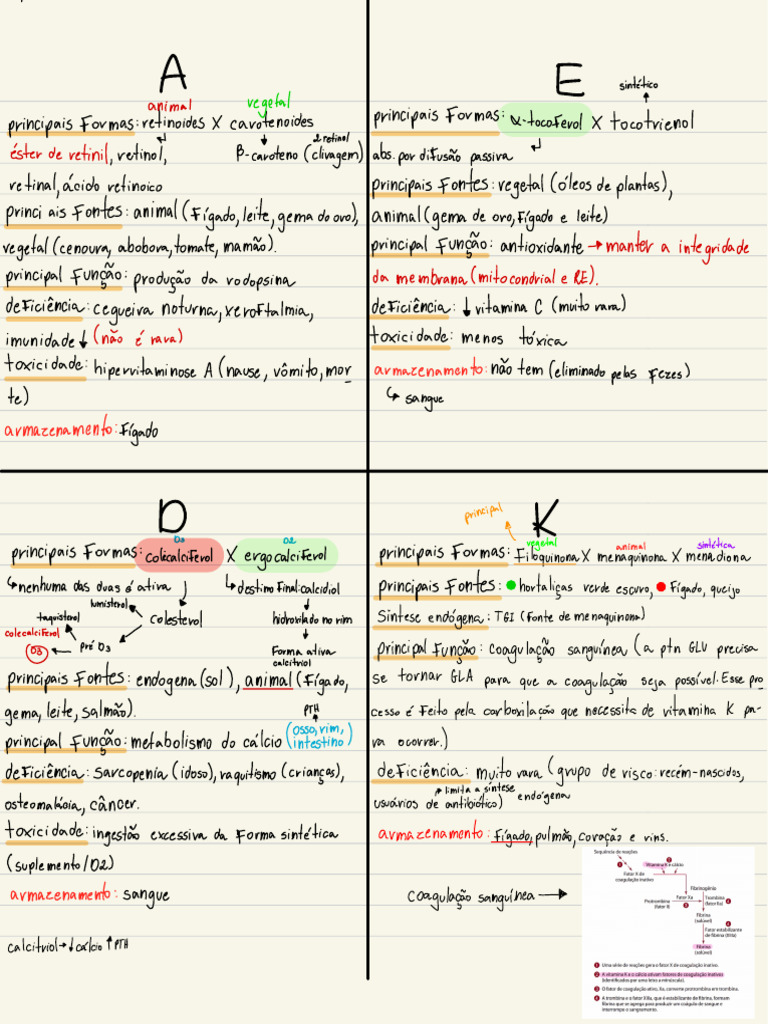 A
animal
vegetal
principais Formas: retinoides X carotenoides
éster de retinil, retinol,
2 retinol
β-caroteno (clivagem)
retinal, ácido retinoico
princi ais Fontes: animal (Fígado, leite, gema do ovo),
vegetal (cenoura, abobora, tomate, mamão).
principal Função: produção da rodopsina
deFiciência: cegueira noturna, xeroFtalmia,
imunidade ↓ (não é rara)
toxicidade: hipervitaminose A (nause, vômito, mor
te)
armazenamento: Fígado
E
sintético
principais Formas: α-tocoFerol X tocotrienol
abs. por difusão passiva
principais Fontes: vegetal (óleos de plantas),
animal (gema de ovo, Fígado e leite)
principal Função: antioxidante → manter a integridade
da membrana (mitocondrial e RE).
deFiciência: ↓ vitamina C (muito rara)
toxicidade: menos tóxica
armazenamento: não tem (eliminado pelas Fezes)
↳ sangue
D
D3
D2
principais Formas: colecalciFerol X ergocalciFerol
↳ nenhuma das duas é ativa
↳ destino Final: calcidiol
lumisterol
taquisterol
Colesterol
hidroxilado no rim
colecalciFerol
D3 ← pré D3
Forma ativa
calcitriol
principais Fontes: endogena (sol), animal (Fígado,
gema, leite, salmão).
PTH
principal Função: metabolismo do cálcio (osso, rim,
intestino)
deFiciência: Sarcopenia (idoso), raquitismo (crianças),
osteomalácia, câncer.
toxicidade: ingestão excessiva da Forma sintética
(suplemento/D2)
armazenamento: sangue
calcitriol → ↓ cálcio ↑ PTH
K
principal
vegetal
animal
sintética
principais Formas: Filoquinona X menaquinona X menadiona
principais Fontes: hortaliças verde escuro, Fígado, queijo
Síntese endógena: TGI (Fonte de menaquinona)
principal Função: coagulação sanguínea (a ptn GLU precisa
se tornar GLA para que a coagulação seja possível. Esse pro
cesso é Feito pela carboxilação que necessita de vitamina K pa-
ra ocorrer.)
deFiciência: muito rara (grupo de risco: recém-nascidos,
↳ limita a síntese
endógena
usuários de antibiótico)
armazenamento: Fígado, pulmão, coração e rins.
coagulação sanguínea →
Sequência de reações
Vitamina K e cálcio
Fator X de
coagulação inativo
Fibrinogênio
Fator Xa
Protrombina
(fator II)
Trombina
(fator IIa)
Fibrina
(solúvel)
Fator estabilizante
de fibrina (XIIIa)
Fibrina
(solúvel)
1 Uma série de reações gera o fator X de coagulação inativo.
2 A vitamina K e o cálcio ativam fatores de coagulação inativos
(identificados por uma letra a minúscula).
3 O fator de coagulação ativo, Xa, converte protrombina em trombina.
4 A trombina e o fator XIIIa, que é estabilizante de fibrina, formam
fibrina que se agrega para produzir um coágulo de sangue e
interrompe o sangramento.